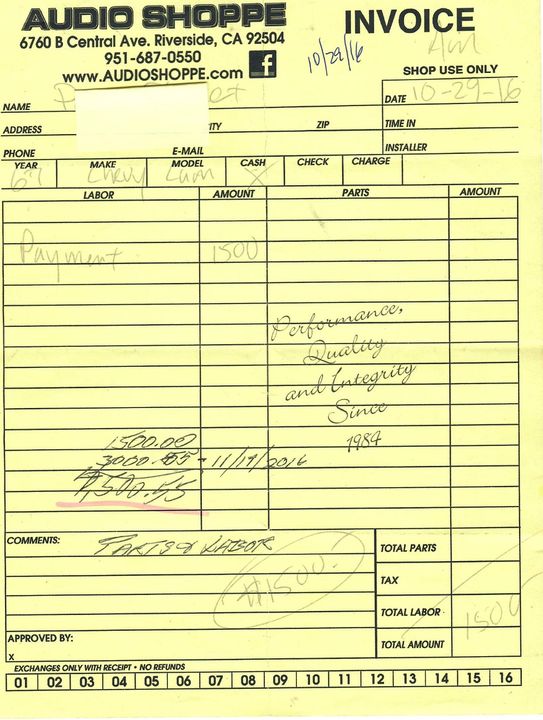 AUDIO SHOPPE
INVOICE
6760 B Central Ave. Riverside, CA 92504
951-687-0550
www.AUDIOSHOPPE.com
10/29/16
SHOP USE ONLY
NAME
DATE 10-29-16
ADDRESS ITY ZIP TIME IN
PHONE E-MAIL INSTALLER
YEAR MAKE MODEL CASH CHECK CHARGE
Chevy X
LABOR AMOUNT PARTS AMOUNT
Payment 1500
Performance,
Quality
and Integrity
Since
1984
1500.00
3000.55 - 11/19/2016
4,500.55
COMMENTS: PARTS & LABOR
TOTAL PARTS
$1500.
TAX
TOTAL LABOR 1500
APPROVED BY:
TOTAL AMOUNT
X
EXCHANGES ONLY WITH RECEIPT • NO REFUNDS
01 02 03 04 05 06 07 08 09 10 11 12 13 14 15 16